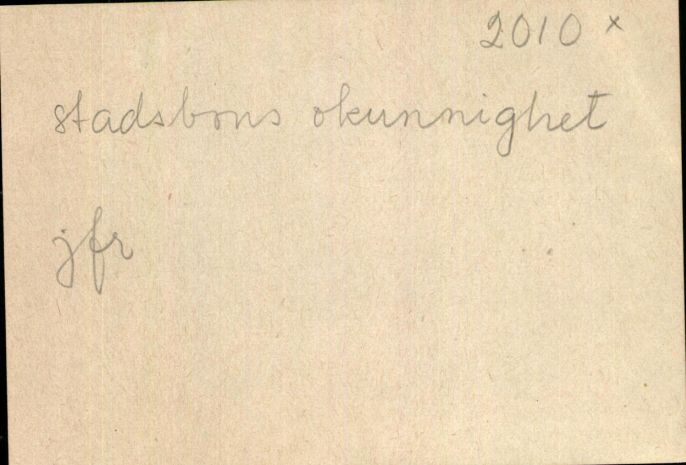 2010 x
stadsbons okunnighet
jfr